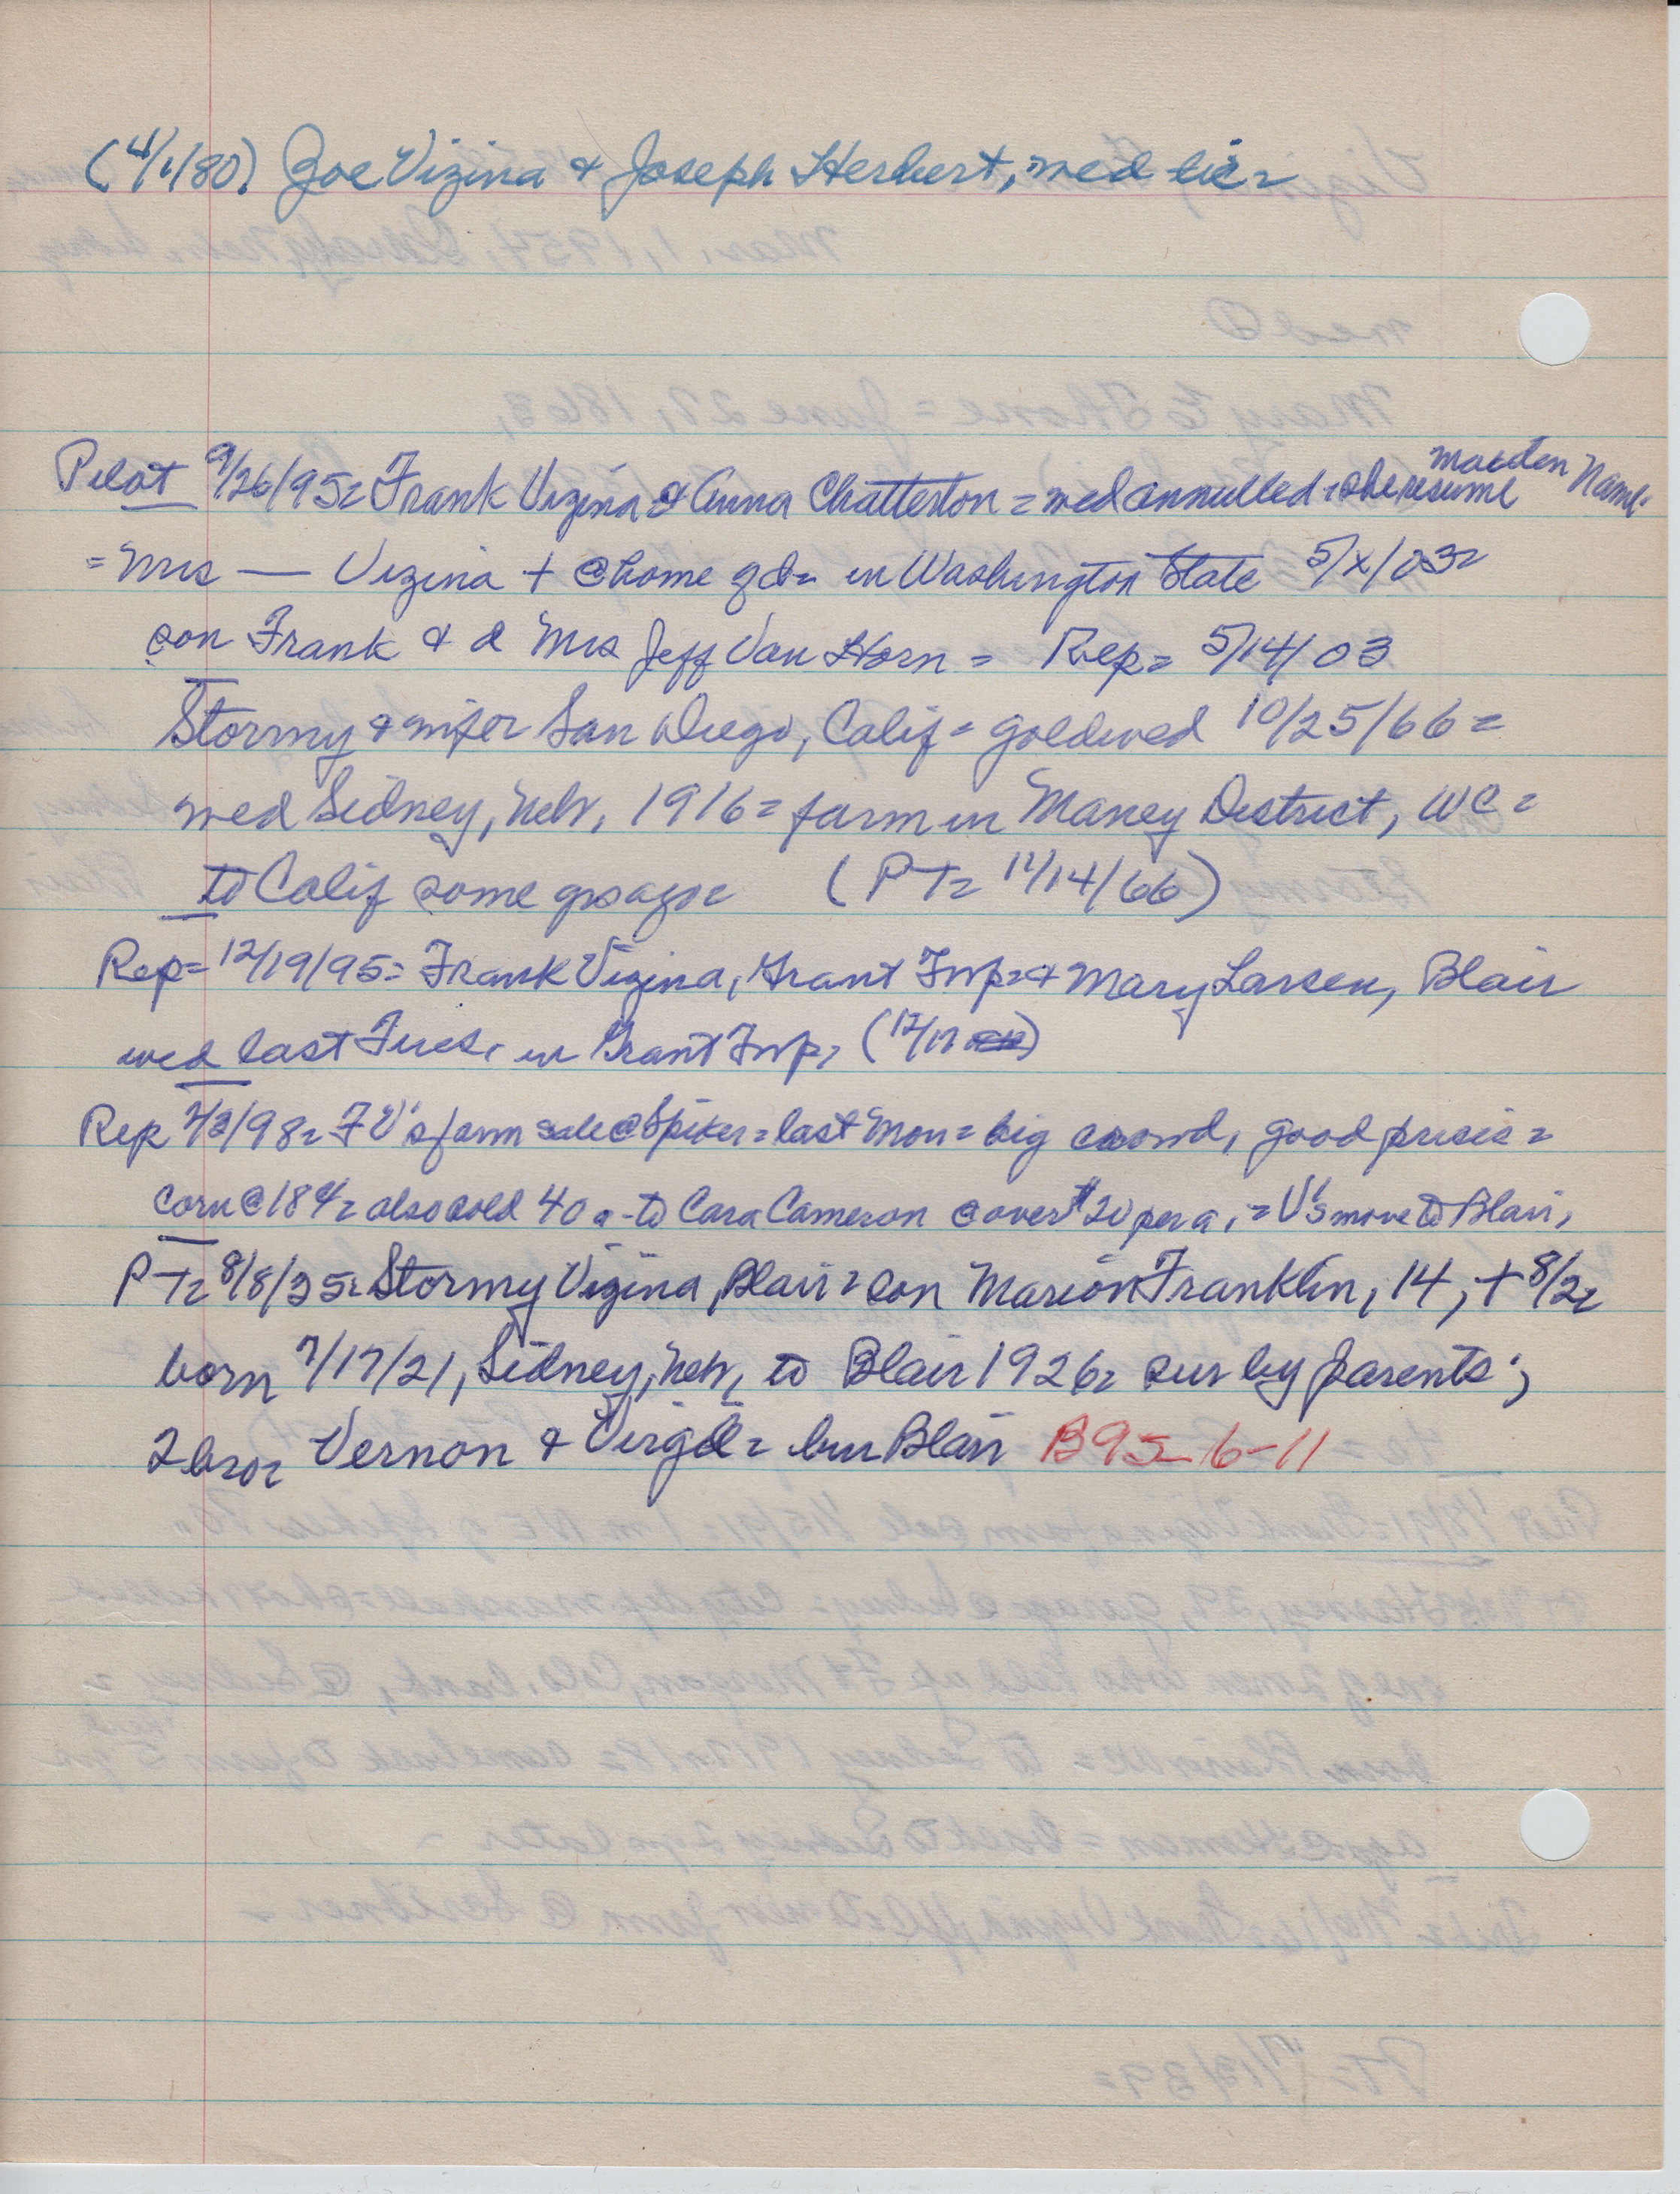 (4/1/80) Zoe Vizina & Joseph Herbert, wed lic=
maiden
Pilot 9/26/95= Frank Vizina & Anna Chatterton = wed annulled = she resume Name.
= Mrs — Vizina + @ home of d= in Washington State 5/x/03=
son Frank & d Mrs Jeff Van Horn = Rep= 5/14/03
Stormy & wife San Diego, Calif= goldwed 10/25/66=
wed Sidney, Nebr, 1916= farm in Maney District, WC=
to Calif some yrs ago= (PT= 11/14/66)
Rep= 12/19/95= Frank Vizina, Grant Twp= & Mary Larsen, Blair
wed last Tues. in Grant Twp, (12/17)
Rep 2/3/98= FV's farm sale @ Spiker = last Mon = big crowd, good prices =
corn @ 18¢= also sold 40 a- to Cara Cameron @ over $20 per a, = V's move to Blair,
PT= 8/8/35= Stormy Vizina, Blair= son Marion Franklin, 14, + 8/2=
born 7/17/21, Sidney, Nebr, to Blair 1926= sur by parents;
2 bro= Vernon & Virgil= bur Blair B95-6-11